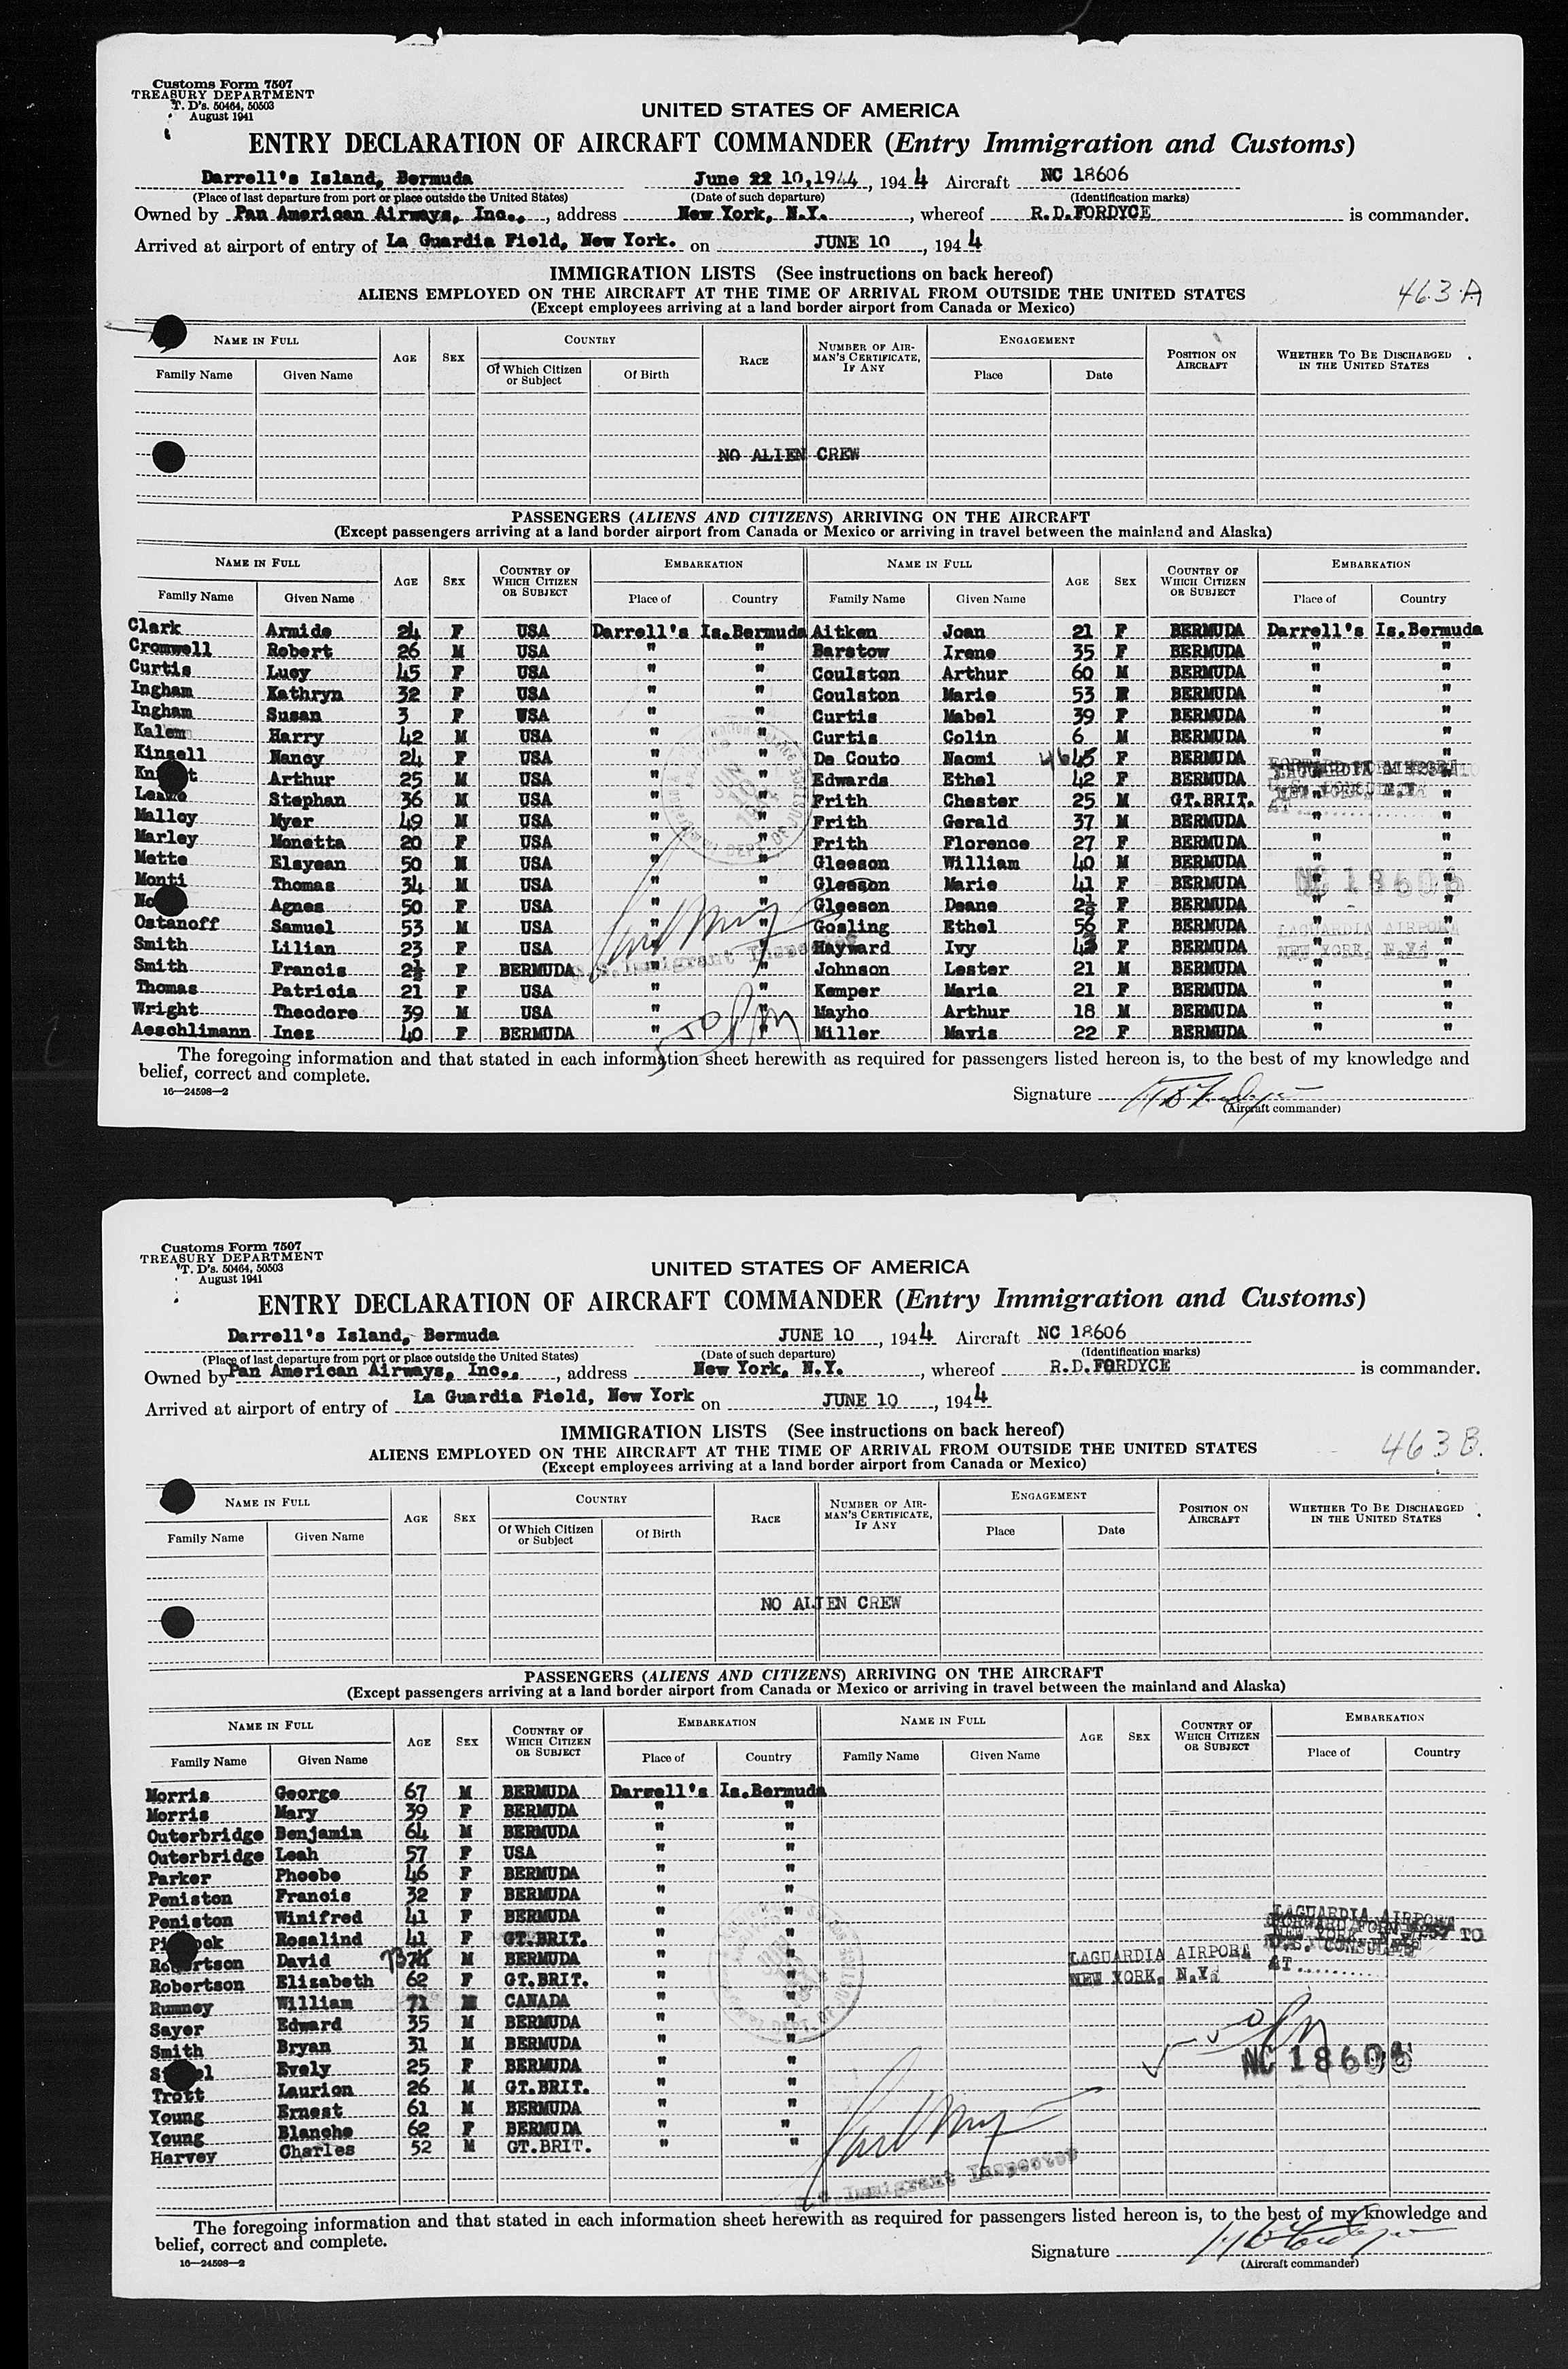 Customs Form 7507
TREASURY DEPARTMENT
T. D's. 50464, 50503
August 1941
UNITED STATES OF AMERICA
ENTRY DECLARATION OF AIRCRAFT COMMANDER (Entry Immigration and Customs)
Darrell's Island, Bermuda June 22 10,1944, 194 4 Aircraft NC 18606
(Place of last departure from port or place outside the United States) (Date of such departure) (Identification marks)
Owned by Pan American Airways, Inc., address New York, N.Y., whereof R.D.FORDYCE is commander.
Arrived at airport of entry of La Guardia Field, New York. on JUNE 10, 194 4
IMMIGRATION LISTS (See instructions on back hereof)
463 A
ALIENS EMPLOYED ON THE AIRCRAFT AT THE TIME OF ARRIVAL FROM OUTSIDE THE UNITED STATES
(Except employees arriving at a land border airport from Canada or Mexico)
NAME IN FULL AGE SEX COUNTRY RACE NUMBER OF AIR-MAN'S CERTIFICATE, IF ANY ENGAGEMENT POSITION ON AIRCRAFT WHETHER TO BE DISCHARGED IN THE UNITED STATES
Family Name Given Name Of Which Citizen or Subject Of Birth Place Date
NO ALIEN CREW
PASSENGERS (ALIENS AND CITIZENS) ARRIVING ON THE AIRCRAFT
(Except passengers arriving at a land border airport from Canada or Mexico or arriving in travel between the mainland and Alaska)
NAME IN FULL AGE SEX COUNTRY OF WHICH CITIZEN OR SUBJECT EMBARKATION NAME IN FULL AGE SEX COUNTRY OF WHICH CITIZEN OR SUBJECT EMBARKATION
Family Name Given Name Place of Country Family Name Given Name Place of Country
Clark Armide 24 F USA Darrell's Is.Bermuda Aitken Joan 21 F BERMUDA Darrell's Is.Bermuda
Cromwell Robert 26 M USA " " Barstow Irene 35 F BERMUDA " "
Curtis Lucy 45 F USA " " Coulston Arthur 60 M BERMUDA " "
Ingham Kathryn 32 F USA " " Coulston Marie 53 F BERMUDA " "
Ingham Susan 3 F USA " " Curtis Mabel 39 F BERMUDA " "
Kalem Harry 42 M USA " " Curtis Colin 6 M BERMUDA " "
Kinsell Nancy 24 F USA " " De Couto Naomi 46 45 F BERMUDA " "
Arthur 25 M USA " " Edwards Ethel 42 F BERMUDA " "
Stephan 36 M USA " " Frith Chester 25 M GT.BRIT. " "
Malloy Myer 49 M USA " " Frith Gerald 37 M BERMUDA " "
Marley Monetta 20 F USA " " Frith Florence 27 F BERMUDA " "
Mette Elsyean 50 M USA " " Gleeson William 40 M BERMUDA " "
Monti Thomas 34 M USA " " Gleeson Marie 41 F BERMUDA " "
Agnes 50 F USA " " Gleeson Deane 2½ F BERMUDA " "
Ostanoff Samuel 53 M USA " " Gosling Ethel 56 F BERMUDA " "
Smith Lilian 23 F USA " " Hayward Ivy F BERMUDA " "
Smith Francis 2½ F BERMUDA " " Johnson Lester 21 M BERMUDA " "
Thomas Patricia 21 F USA " " Kemper Maria 21 F BERMUDA " "
Wright Theodore 39 M USA " " Mayho Arthur 18 M BERMUDA " "
Aeschlimann Ines 40 F BERMUDA " " Miller Mavis 22 F BERMUDA " "
NC 18606
LAGUARDIA AIRPORT
NEW YORK, N.Y.
Immigrant Inspector
The foregoing information and that stated in each information sheet herewith as required for passengers listed hereon is, to the best of my knowledge and
belief, correct and complete.
16—24598—2
Signature
(Aircraft commander)
Customs Form 7507
TREASURY DEPARTMENT
T. D's. 50464, 50503
August 1941
UNITED STATES OF AMERICA
ENTRY DECLARATION OF AIRCRAFT COMMANDER (Entry Immigration and Customs)
Darrell's Island, Bermuda JUNE 10, 194 4 Aircraft NC 18606
(Place of last departure from port or place outside the United States) (Date of such departure) (Identification marks)
Owned by Pan American Airways, Inc., address New York, N.Y., whereof R.D.FORDYCE is commander.
Arrived at airport of entry of La Guardia Field, New York on JUNE 10, 194 4
IMMIGRATION LISTS (See instructions on back hereof)
463 B.
ALIENS EMPLOYED ON THE AIRCRAFT AT THE TIME OF ARRIVAL FROM OUTSIDE THE UNITED STATES
(Except employees arriving at a land border airport from Canada or Mexico)
NAME IN FULL AGE SEX COUNTRY RACE NUMBER OF AIR-MAN'S CERTIFICATE, IF ANY ENGAGEMENT POSITION ON AIRCRAFT WHETHER TO BE DISCHARGED IN THE UNITED STATES
Family Name Given Name Of Which Citizen or Subject Of Birth Place Date
NO ALIEN CREW
PASSENGERS (ALIENS AND CITIZENS) ARRIVING ON THE AIRCRAFT
(Except passengers arriving at a land border airport from Canada or Mexico or arriving in travel between the mainland and Alaska)
NAME IN FULL AGE SEX COUNTRY OF WHICH CITIZEN OR SUBJECT EMBARKATION NAME IN FULL AGE SEX COUNTRY OF WHICH CITIZEN OR SUBJECT EMBARKATION
Family Name Given Name Place of Country Family Name Given Name Place of Country
Morris George 67 M BERMUDA Darrell's Is.Bermuda
Morris Mary 39 F BERMUDA " "
Outerbridge Benjamin 64 M BERMUDA " "
Outerbridge Leah 57 F USA " "
Parker Phoebe 46 F BERMUDA " "
Peniston Francis 32 F BERMUDA " "
Peniston Winifred 41 F BERMUDA " "
Rosalind 41 F GT.BRIT. " "
Robertson David 73 M BERMUDA " "
Robertson Elizabeth 62 F GT.BRIT. " "
Rumney William 71 M CANADA " "
Sayer Edward 35 M BERMUDA " "
Smith Bryan 31 M BERMUDA " "
Evely 25 F BERMUDA " "
Trott Laurion 26 M GT.BRIT. " "
Young Ernest 61 M BERMUDA " "
Young Blanche 62 F BERMUDA " "
Harvey Charles 52 M GT.BRIT. " "
LAGUARDIA AIRPORT
NEW YORK, N.Y.
U.S. CONSULATE
AT
LAGUARDIA AIRPORT
NEW YORK, N.Y.
NC 18606
Immigrant Inspector
The foregoing information and that stated in each information sheet herewith as required for passengers listed hereon is, to the best of my knowledge and
belief, correct and complete.
16—24598—2
Signature
(Aircraft commander)